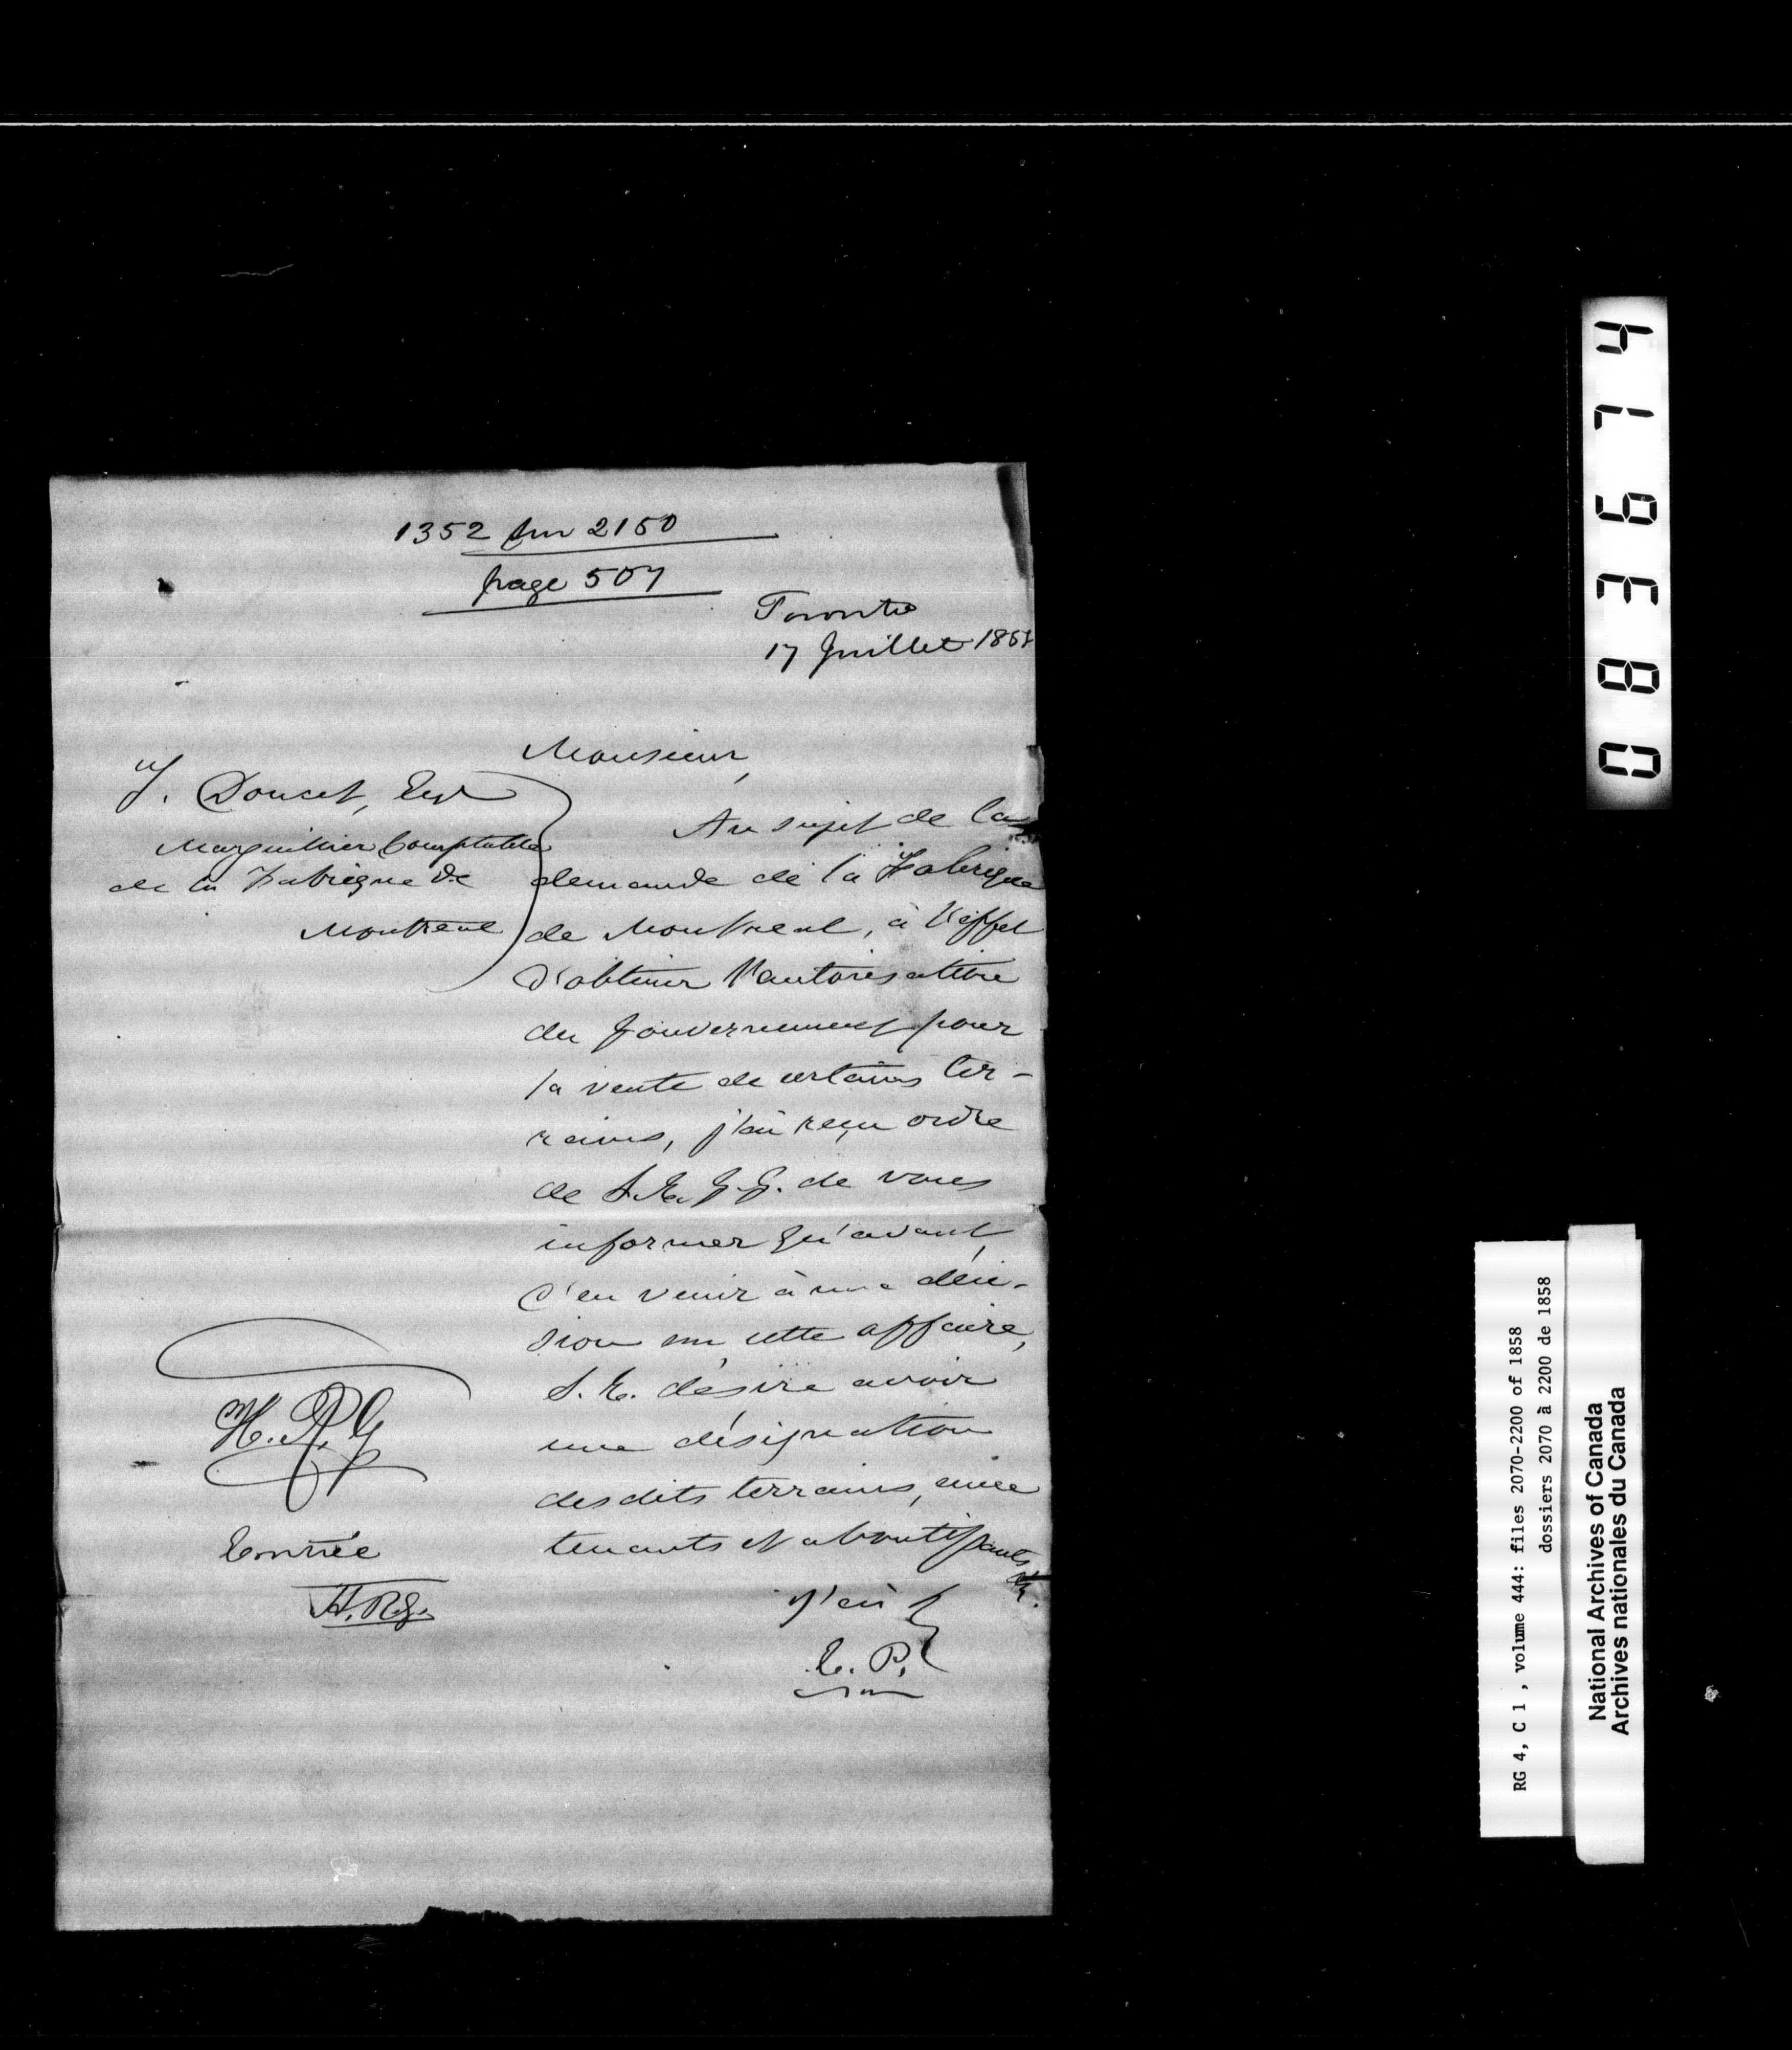 1352 sur 2150
page 507
Toronto
17 Juillet 1857
Monsieur,
J. Doucet, Esq
Marguillier Comptable
de la Fabrique de
Montreal
Au sujet de la
demande de la Fabrique
de Montreal, à l'effet
d'obtenir l'autorisation
du Gouvernement pour
la vente de certains ter-
rains, j'ai reçu ordre
de S. E. le G. G. de vous
informer qu'avant
d'en venir à une déci-
sion sur cette affaire,
S. E. désire avoir
une désignation
desdits terrains, avec
tenants et aboutissants
J'ai
E. P.
H. R. G
Entrée
H. R. G.
083674
RG 4, C 1 , volume 444: files 2070-2200 of 1858
dossiers 2070 à 2200 de 1858
National Archives of Canada
Archives nationales du Canada